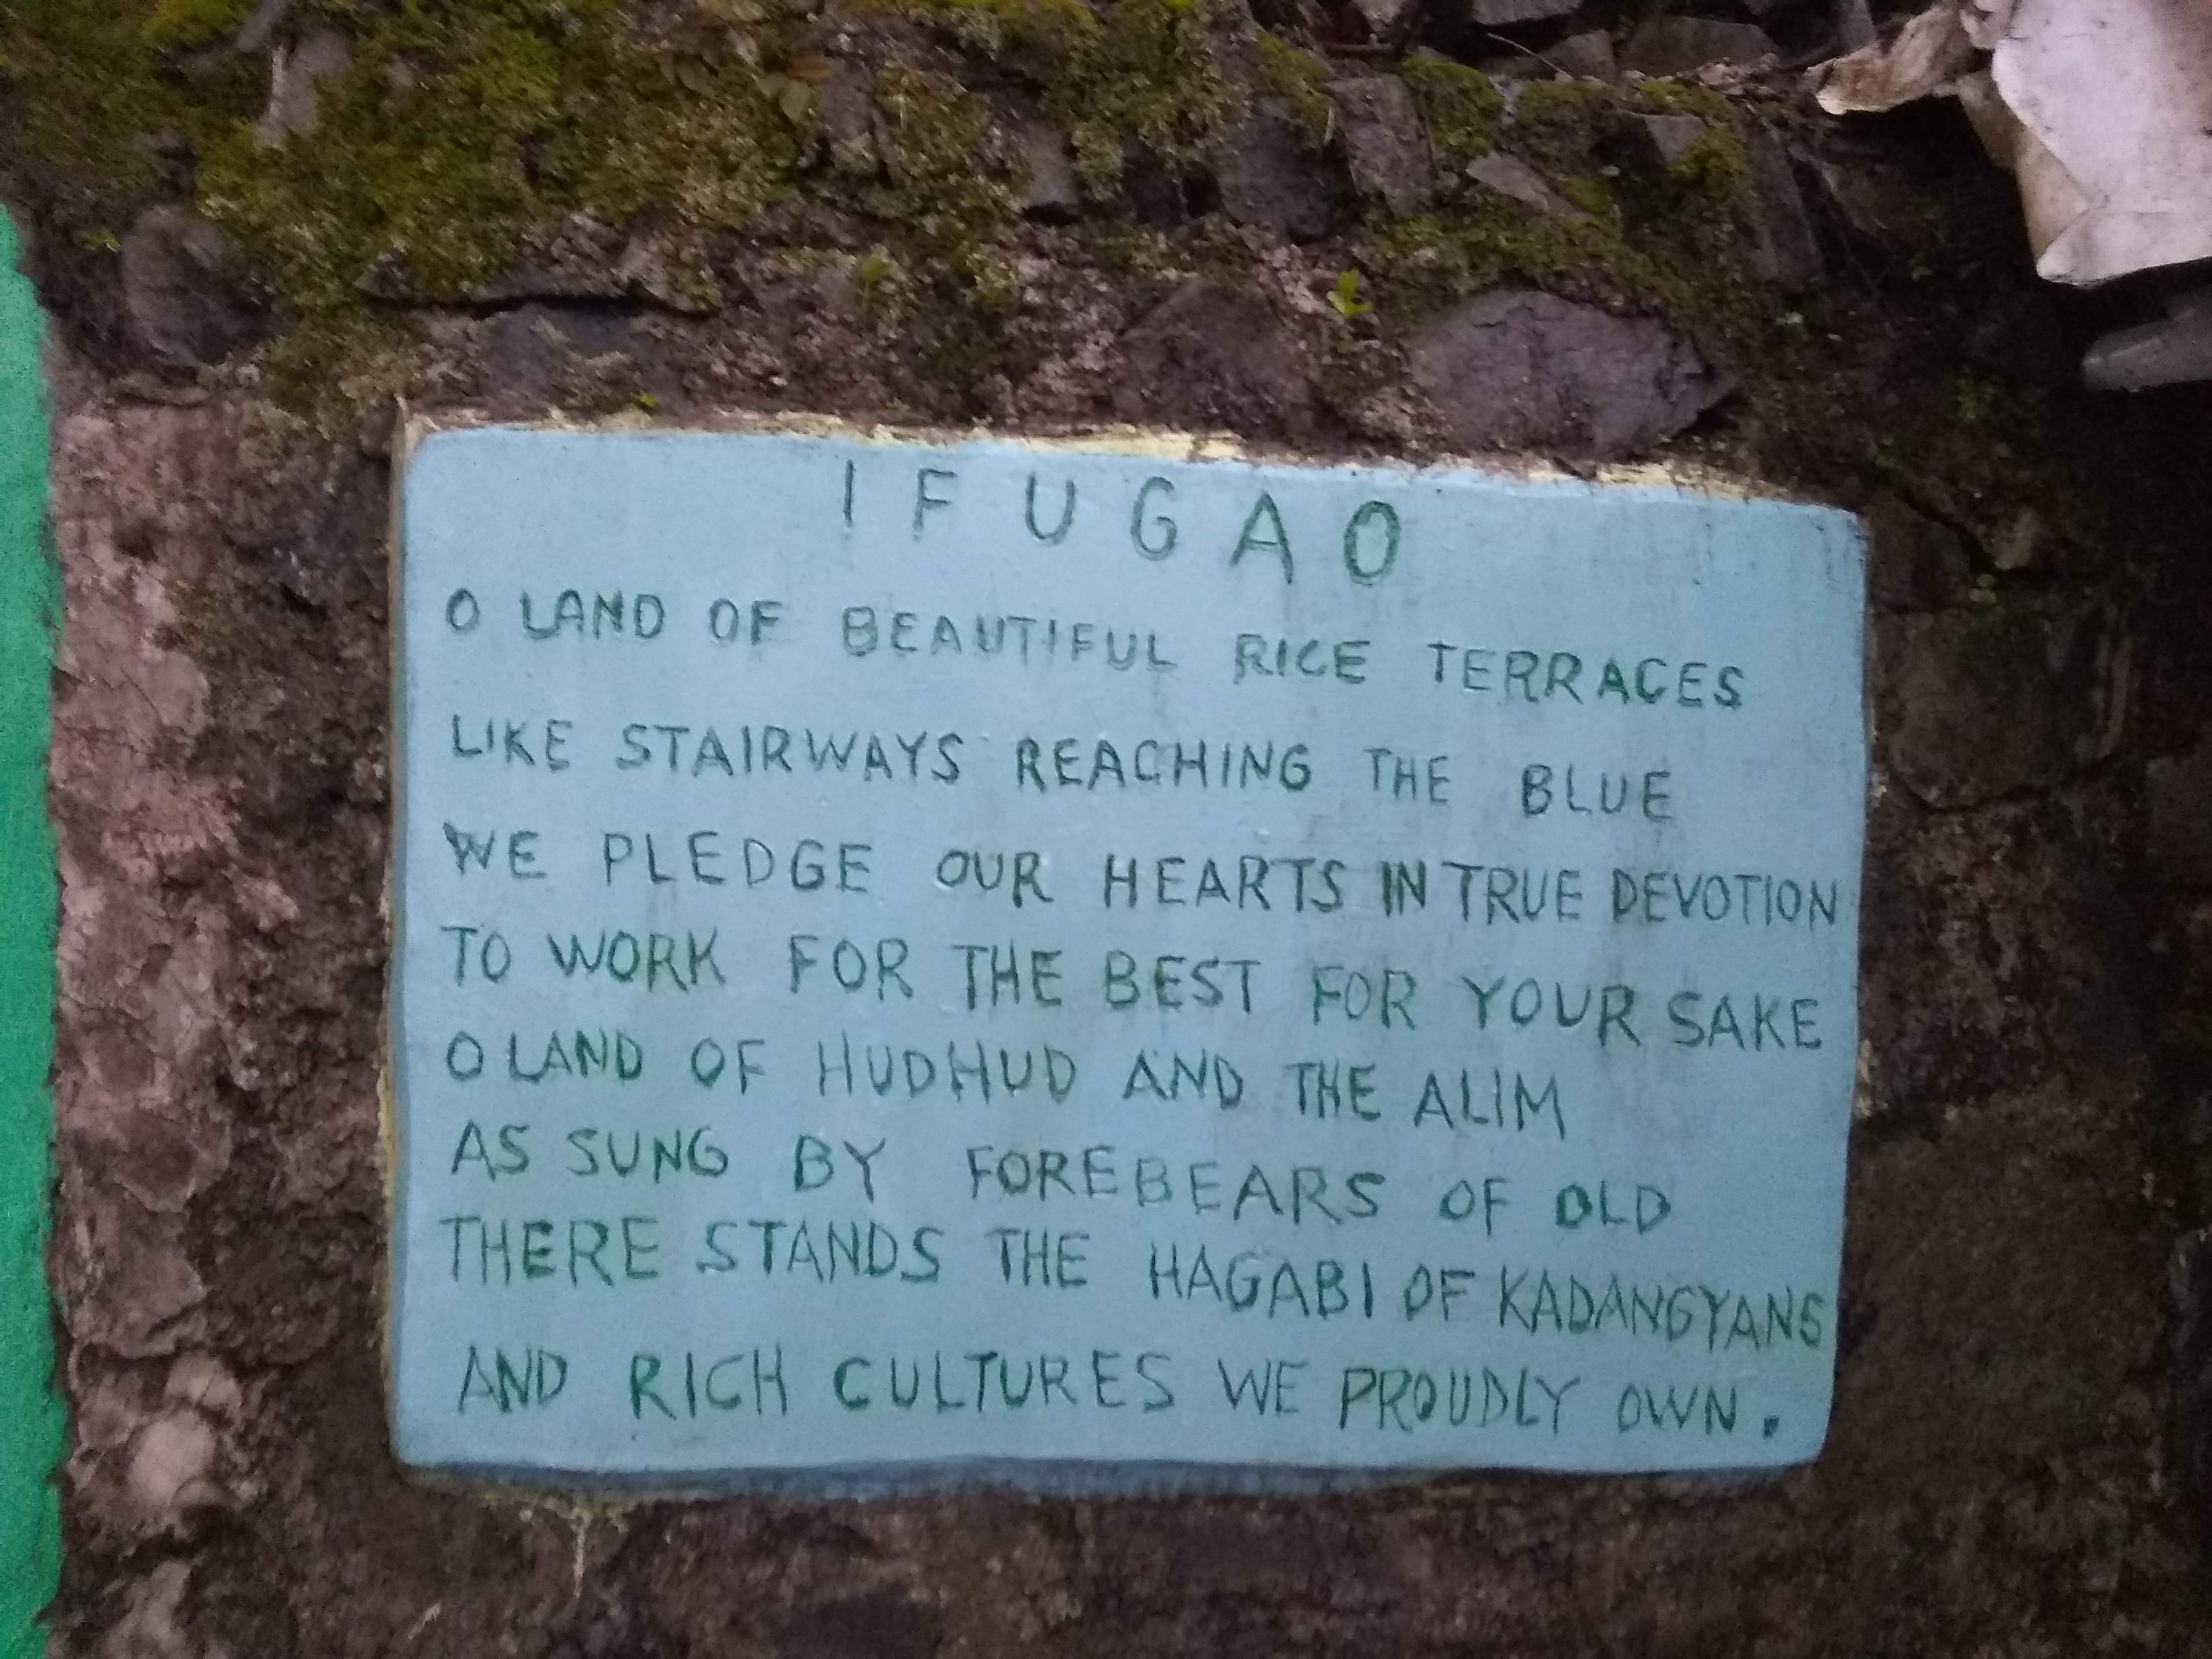 IFUGAO
O LAND OF BEAUTIFUL RICE TERRACES
LIKE STAIRWAYS REACHING THE BLUE
WE PLEDGE OUR HEARTS IN TRUE DEVOTION
TO WORK FOR THE BEST FOR YOUR SAKE
O LAND OF HUDHUD AND THE ALIM
AS SUNG BY FOREBEARS OF OLD
THERE STANDS THE HAGABI OF KADANGYANS
AND RICH CULTURES WE PROUDLY OWN.